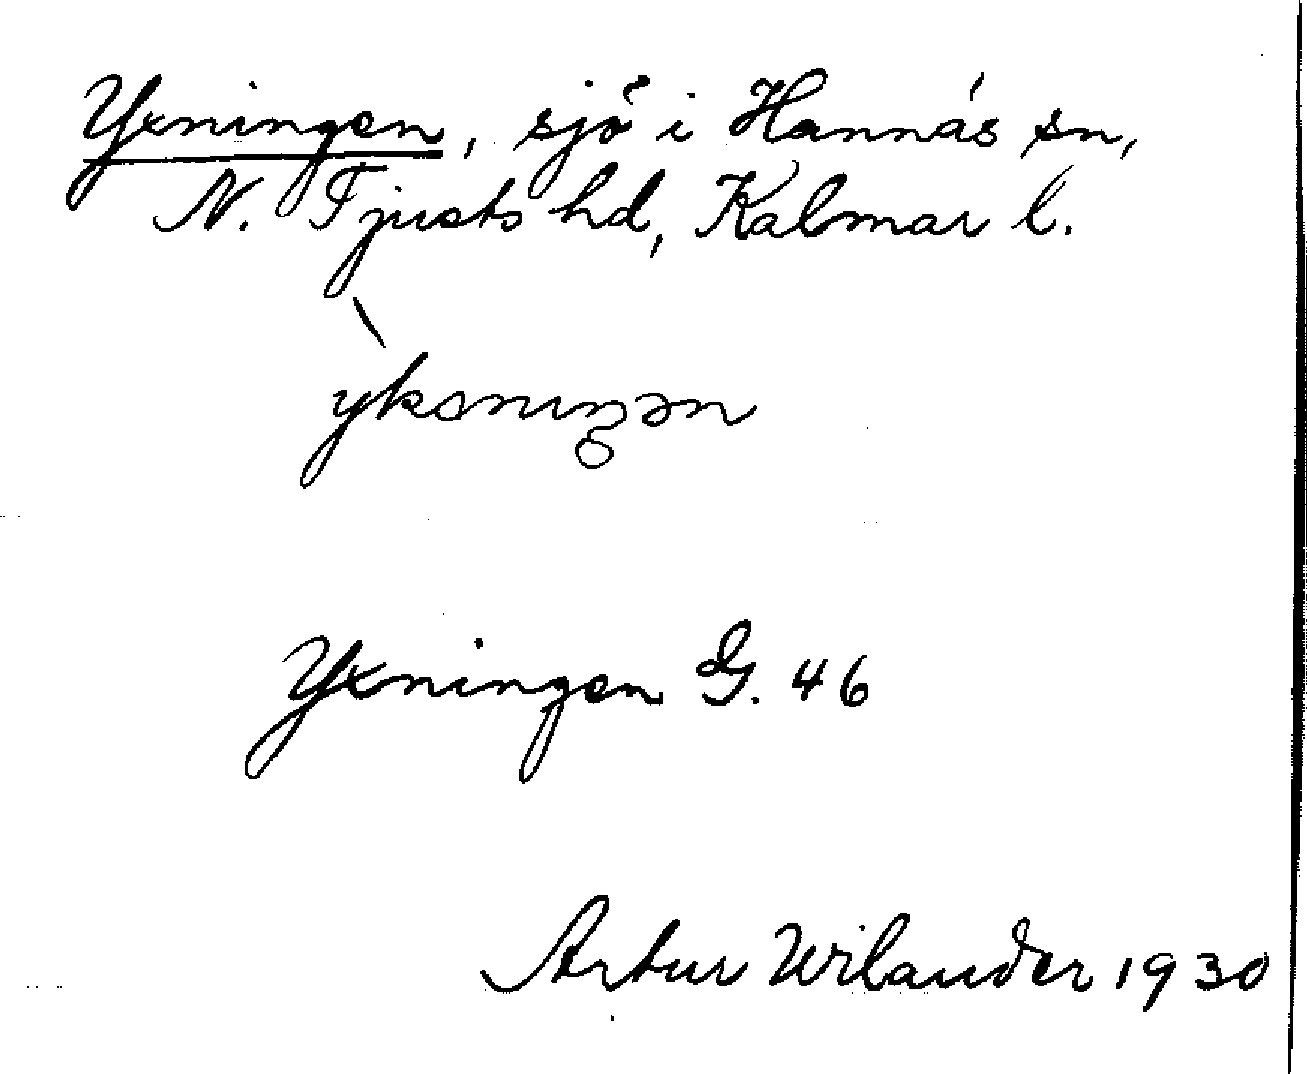 Yxningen, sjö i Hannäs sn,
N. Tjusts hd, Kalmar l.
`yksnıŋən
Yxningen G. 46
Artur Wilander 1930